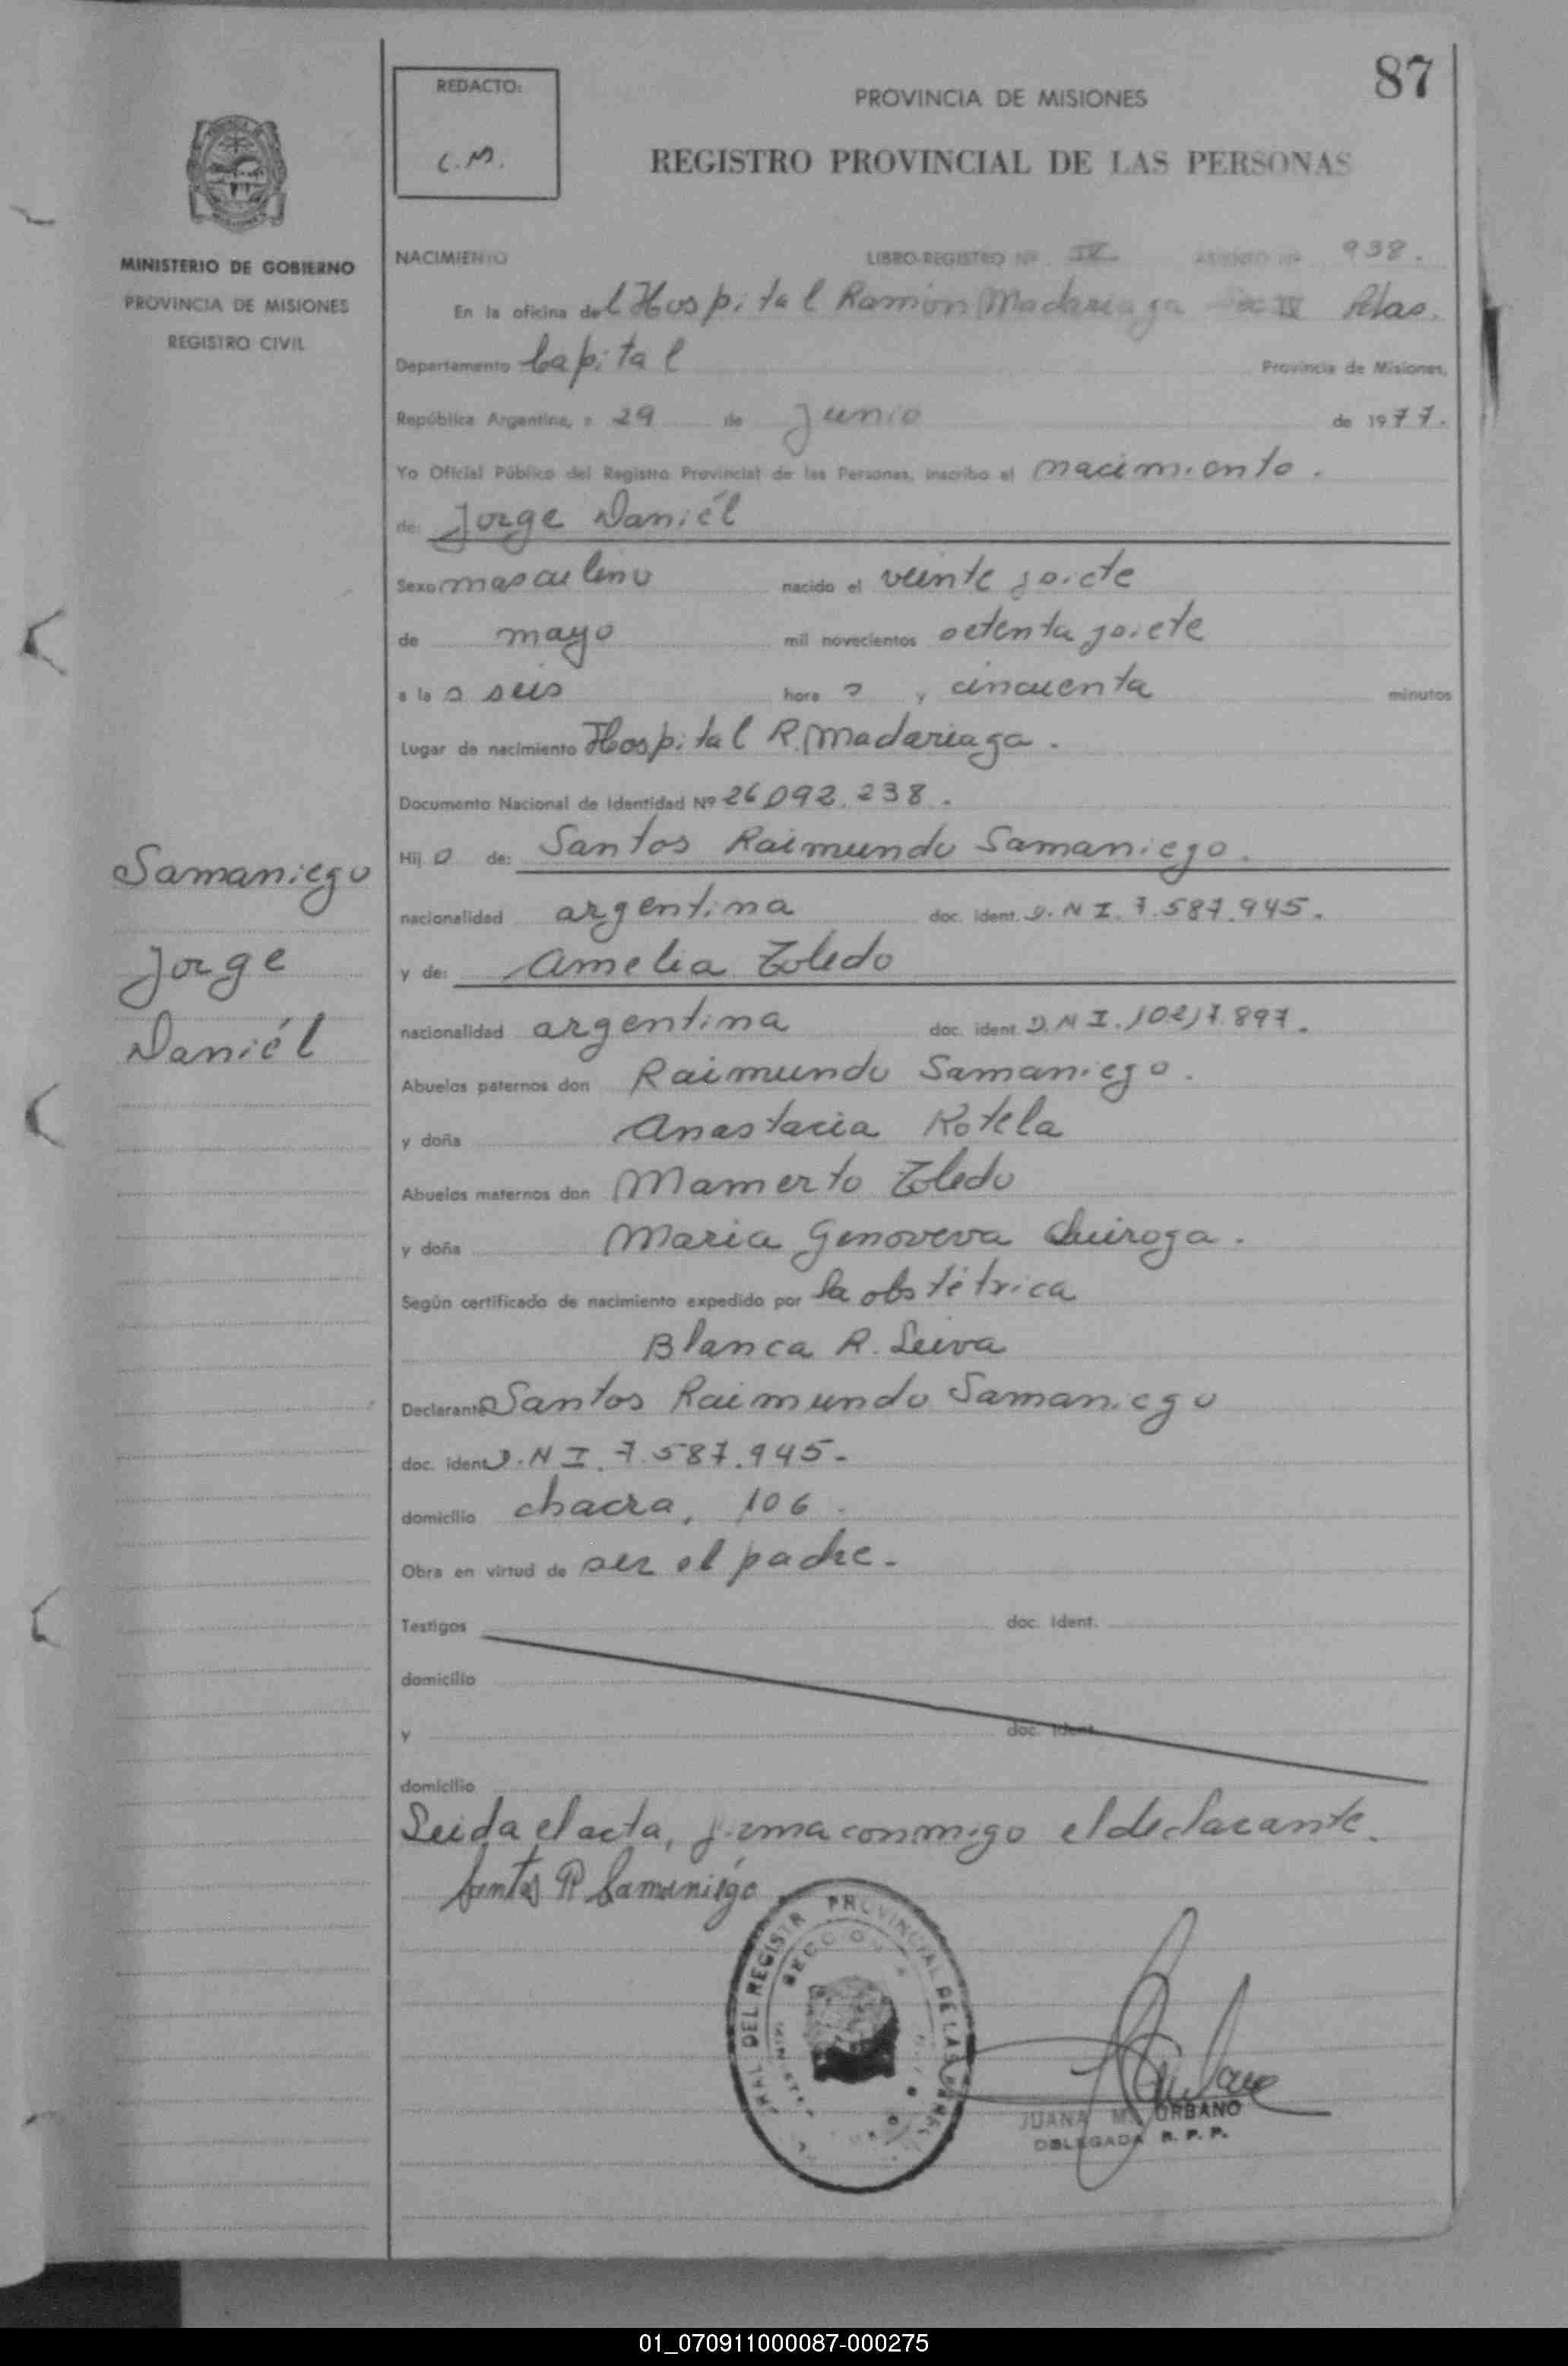 87
REDACTO:
C.M.
PROVINCIA DE MISIONES
REGISTRO PROVINCIAL DE LAS PERSONAS
MINISTERIO DE GOBIERNO
PROVINCIA DE MISIONES
REGISTRO CIVIL
NACIMIENTO LIBRO-REGISTRO Nº IV ASIENTO Nº 938.
En la oficina del Hospital Ramón Madariaga IV Pdas.
Departamento Capital Provincia de Misiones,
República Argentina, a 29 de Junio de 1977.
Yo Oficial Público del Registro Provincial de las Personas, inscribo el nacimiento.
de: Jorge Daniél
Sexo masculino nacido el veinte siete
de mayo mil novecientos setenta siete
a la s seis hora s y cincuenta minutos
Lugar de nacimiento Hospital R. Madariaga.
Documento Nacional de Identidad Nº 26.092.238.
Samaniego
Jorge
Daniél
Hij o de: Santos Raimundo Samaniego.
nacionalidad argentina doc. ident. D.N.I. 7.587.945.
y de: Amelia Toledo
nacionalidad argentina doc. ident. D.N.I.
Abuelos paternos don Raimundo Samaniego.
y doña Anastacia Rotela
Abuelos maternos don Mamerto Toledo
y doña Maria Genoveva Quiroga.
Según certificado de nacimiento expedido por la obstétrica
Blanca R. Leiva
Declarante Santos Raimundo Samaniego
doc. ident D.N.I. 7.587.945-
domicilio chacra, 106.
Obra en virtud de ser el padre.
Testigos doc. Ident.
domicilio
y doc. Ident.
domicilio
Leida el acta, firma conmigo el declarante.
Santos R Samaniégo
DEL REGISTR PROVINCIAL DE LAS
SECCION
JUANA M. URBANO
DELEGADA R. P. P.
01_070911000087-000275